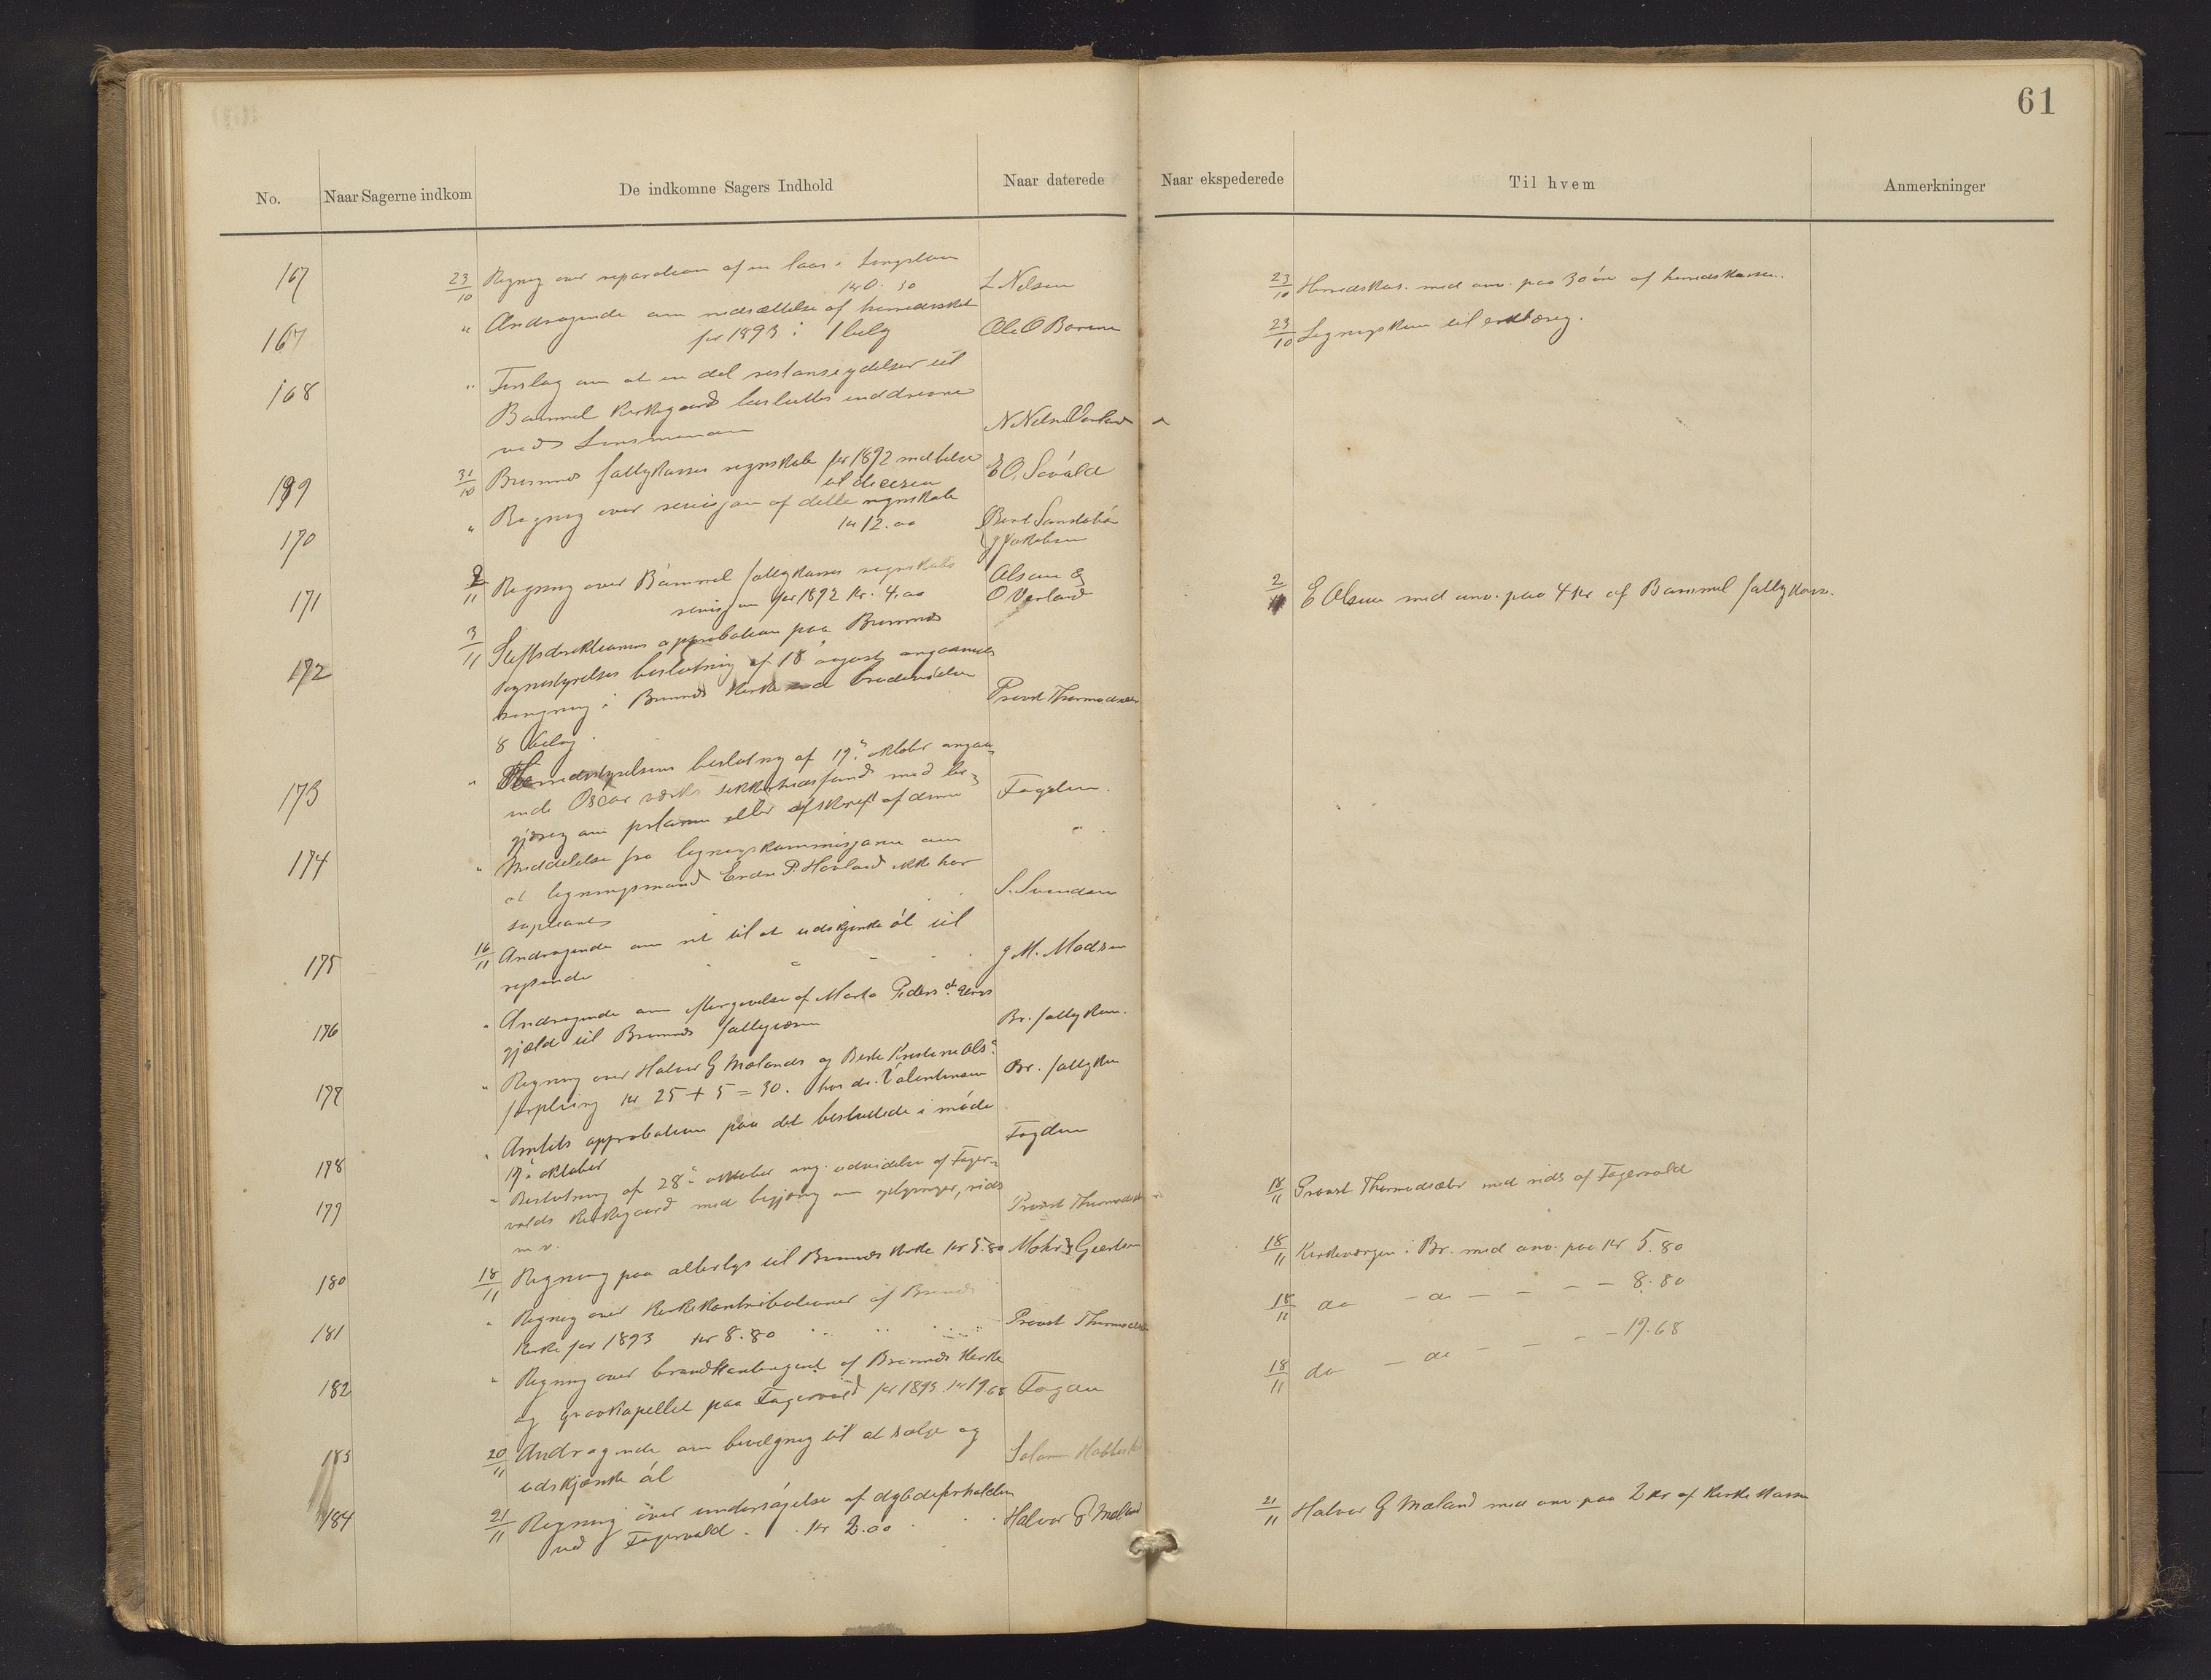 61
No.
Naar Sagerne indkom
De indkomne Sagers Indhold
Naar daterede
Naar ekspederede
Til hvem
Anmerkninger
167 23/10 Regning over reparation af en laas i
kr 0.30 L Nelsen 23/10 Herredskas. med anv. paa 30 øre af herredskassen.
167 " Andragende om nedsættelse af herredsskat
for 1893 : 1 bilag Ole O 23/10 Ligningskom til erklæring.
168 " Forslag om at en del restanseydelser til
Bømmel Kirkegaard besluttes inddrevne
ved Lensmanden
169 31/10 Bremnes fattigkasses regnskab for 1892 meddelse
til decision E O. Søvold
170 " Regning over revisjon af dette regnskab
kr 12.00
J Jakobsen
171 2/11 Regning over Bømmel fattigkasses regnskabs
revisjon for 1892 Kr. 4.00 Olsen &
O Vorland 2/11 E Olsen med anv. paa 4 Kr af Bømmel fattigkasse.
172 3/11 Stiftsdirektionens approbation paa Bremnes
sognestyrelses beslutning af 18de august angaaende
i Bremnes kirke
8 bilag. Provst Thormodsæter
173 " Herredsstyrelsens beslutning af 19de oktober angaa-
ende Oscar sikkerhedsfond med be-
gjæring om planen eller afskrift af denne Fogden.
174 " Meddelelse fra ligningskommisjonen om
at ligningsmand Endre P. Hovland ikke har
supleant S. Svendsen
175 16/11 Andragende om ret til at udskjenke øl til
reisende J M. Madsen
176 " Andragende om eftergivelse af Marta Peders d.
gjæld til Bremnes fattigvæsen Br. fattigkom.
177 " Regning over Halvor G Mælands og Berte Kristine Ols d.
forpleining kr 25 + 5 = 30. hos dr. Valentinsen Br. fattigkom
178 " Amtets approbation paa det besluttede i møde
19de oktober Fogden
179 " Beslutning af 28de oktober ang. udvidelse af Fager-
volds kirkegaard med begjæring om oplysninger, rids
m. v. Provst Thormodsæter 18/11 Provst Thormodsæter med rids af Fagervold
180 18/11 Regning paa alterlys til Bremnes kirke kr 5.80 Mohr & Geertsen 18/11 Kirkeværgen i Br. med anv. paa kr 5.80
181 " Regning over Kirkekontributioner af Bremnes
kirke for 1893 kr 8.80 Provst Thormodsæter 18/11 do - do - - - - 8.80
182 " Regning over brandkontingent af Bremnes kirke
og gravkapellet paa Fagervold for 1893 kr 19.68 Fogden 18/11 do - do - - - - 19.68
183 20/11 Andragende om bevilgning til at sælge og
udskjænke øl
184 21/11 Regning over undersøgelse af dybdeforholdene
ved Fagervold. kr 2.00 Halvor G Mæland 21/11 Halvor G Mæland med anv paa 2 kr af kirkekassen